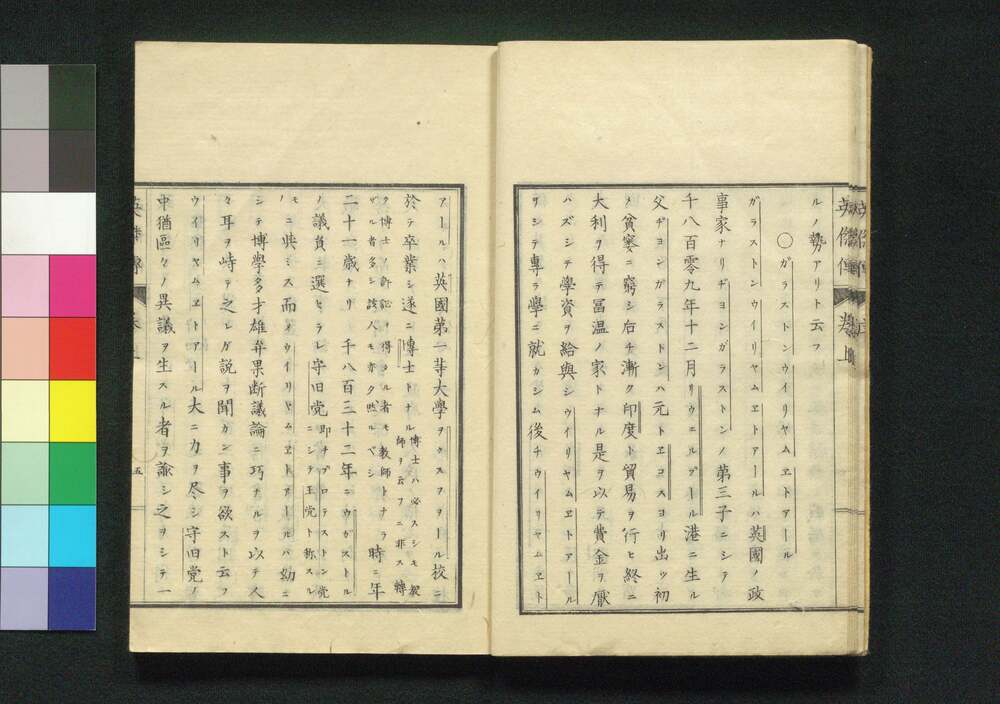 ルノ勢アリト云フ
〇ガラストンウイリヤムエトアール
ガラストンウイリヤムヱトアールハ英國ノ政
事家ナリヂヨンガラストンノ第三子ニシテ
千八百零九年十二月リウエルプール港ニ生ル
父ヂヨンガラストンハ元トヱコスヨリ出ツ初
メ貧窶ニ窮シ后チ漸ク印度ト貿易ヲ行ヒ終ニ
大利ヲ得テ冨温ノ家トナル是ヲ以テ費金ヲ厭
ハズシテ學資ヲ給與シウイリヤムヱトアール
ヲシテ專ラ學ニ就カシム後チウイリヤムヱト
アールハ英國第一等大學ヲクスフヲール校ニ
於テ卒業シ遂ニ博士トナル博士ハ必スシモ教師ヲ云フニ非ス
ク博士ノ号ヲ得タル者モ教師トナラザル者多シ該人モ亦ク然ルベシ時ニ年
二十一歳ナリ千八百三十二年ニウガストル
ノ議員ニ選ヒラレ守旧党即チプロテストン党ニシテ王党ト称スル
モニ與ミス而イウイリヤムヱトアールハ幼ニ
シテ博學多才雄弁果断議論ニ巧ナルヲ以テ人
々耳ヲ峙テ之レガ説ヲ聞カン事ヲ欲スト云フ
ウイリヤムヱトアール大ニ力ヲ尽シ守旧党ノ
中猶區々ノ異議ヲ生スル者ヲ諭シ之ヲシテ一
英傑傳
五